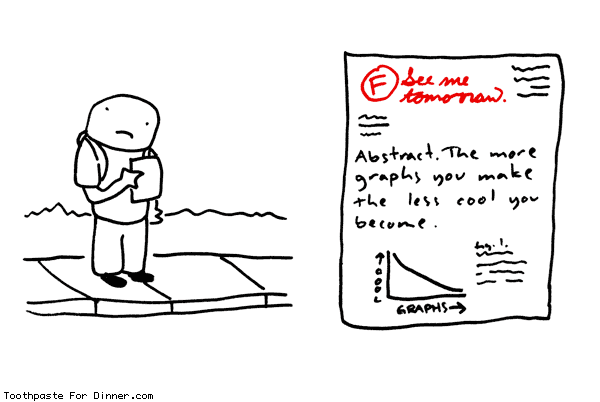 F See me
tomorrow.
Abstract. The more
graphs you make
the less cool you
become.
fig. 1.
↑COOL
GRAPHS→
Toothpaste For Dinner.com